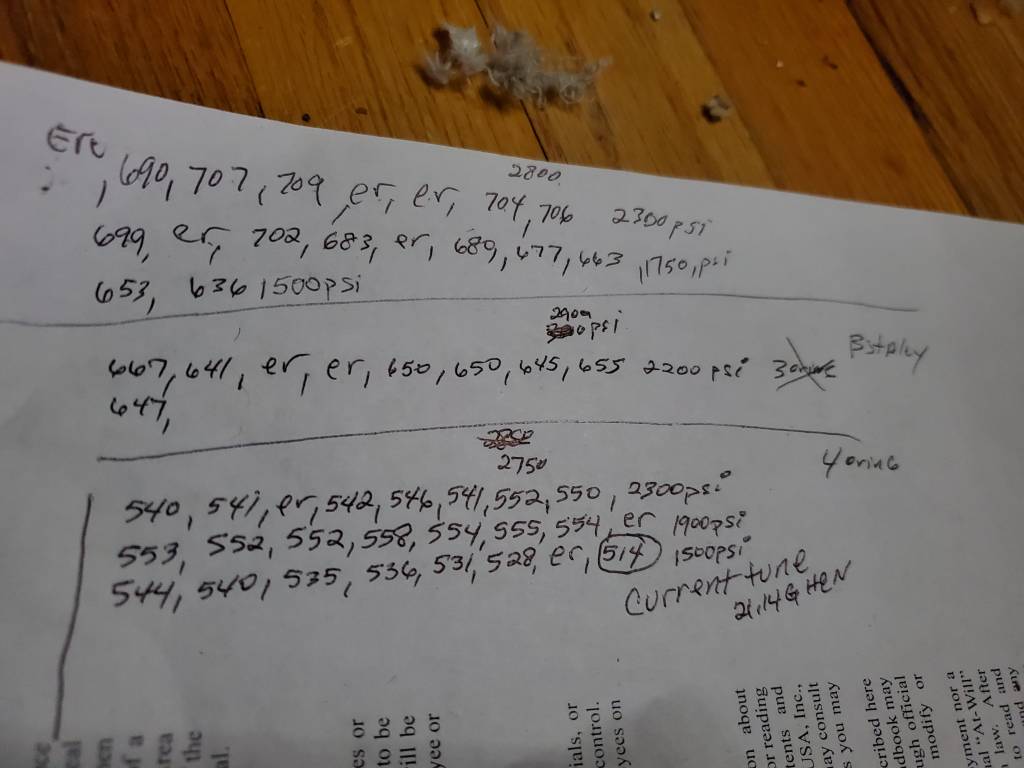 Err
2800
, 690, 707, 709, er, er, 704, 706 2300psi
699, er, 702, 683, er, 680, 677, 663 , 1750, psi
653, 636 1500psi
psi
667, 641, er, er, 650, 650, 645, 655 2200psi
647,
2750
4 oring
540, 541, er, 542, 546, 541, 552, 550, 2300psi
553, 552, 552, 558, 554, 555, 554, er 1900psi
544, 540, 535, 536, 531, 528, er, 514 1500psi
Current tune
of a
area
the
al.
es or
to be
ill be
yee or
ials, or
control.
yees on
on about
or reading
tents and
USA, Inc.,
ay consult
s you may
cribed here
ndbook may
ugh official
modify or
yment nor a
ial "At-Will"
law. After
to read and
any